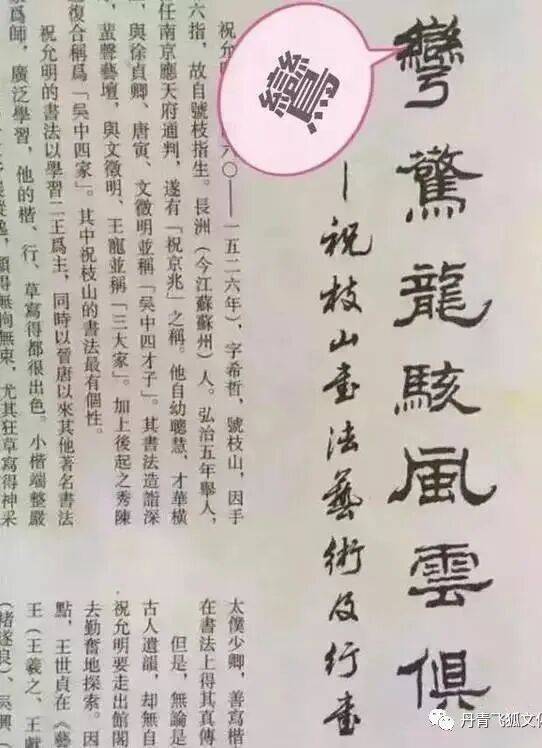 彎驚龍駭風雲俱
鸞
—祝枝山書法藝術及行書
祝允六〇——一五二六年），字希哲，號枝山，因手
六指，故自號枝指生。長洲（今江蘇蘇州）人。弘治五年舉人，
任南京應天府通判，遂有「祝京兆」之稱。他自幼聰慧，才華橫
，與徐貞卿、唐寅、文徵明並稱「吳中四才子」。其書法造詣深
，蜚聲藝壇，與文徵明、王寵並稱「三大家」。加上後起之秀陳
復合稱爲「吳中四家」。其中祝枝山的書法最有個性。
祝允明的書法以學習二王爲主，同時以晉唐以來其他著名書法
家爲師，廣泛學習，他的楷、行、草寫得都很出色。小楷端整嚴
縱逸，顯得無拘無束，尤其狂草寫得神采
太僕少卿，善寫楷
在書法上得其真傳
但是，無論是
古人遺韻，却無自
祝允明要走出館閣
去勤奮地探索。因
點，王世貞在《藝
王（王羲之、王獻
（褚遂良）、吳興（
丹青飞狐文化